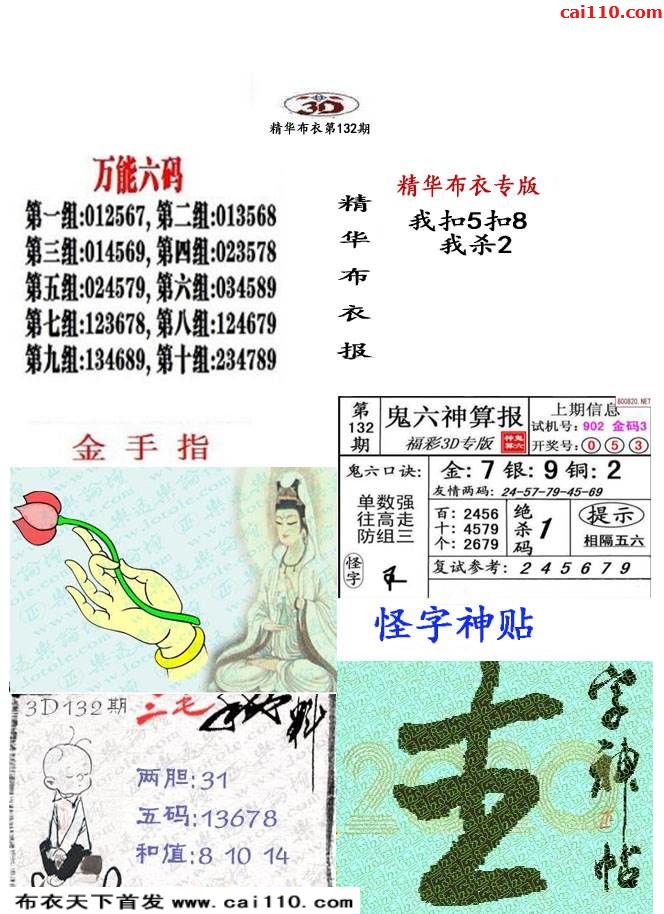 cai110.com
3D
精华布衣第132期
万能六码
第一组:012567, 第二组:013568
第三组:014569, 第四组:023578
第五组:024579, 第六组:034589
第七组:123678, 第八组:124679
第九组:134689, 第十组:234789
精华布衣报
精华布衣专版
我扣5扣8
我杀2
金手指
第132期
鬼六神算报
福彩3D专版
神鬼算六
800820.NET
上期信息
试机号: 902 金码3
开奖号: 0 5 3
鬼六口诀:
单数强
往高走
防组三
金: 7 银: 9 铜: 2
友情两码: 24-57-79-45-69
百: 2456
十: 4579
个: 2679
绝杀码 1
提示
相隔五六
怪字
复试参考: 2 4 5 6 7 9
怪字神贴
字神帖
2020
3D132期
三毛
两胆:31
五码:13678
和值:8 10 14
布衣天下首发 www.cai110.com